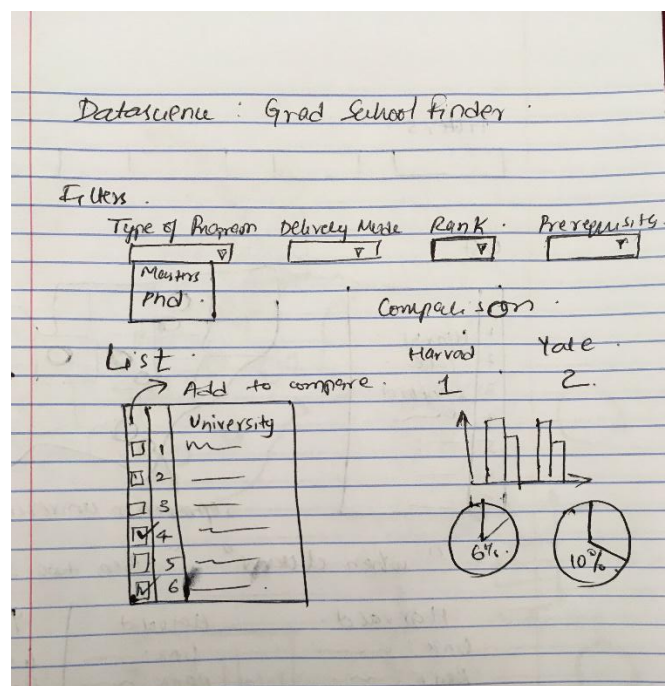 Datascience : Grad School Finder
Filters
Type of Program Delivery Mode Rank Prerequisits
Masters
Phd
Comparison
List
Harvad Yale
Add to compare
1 2
University
1
2
3
4
5
6
6%
10%